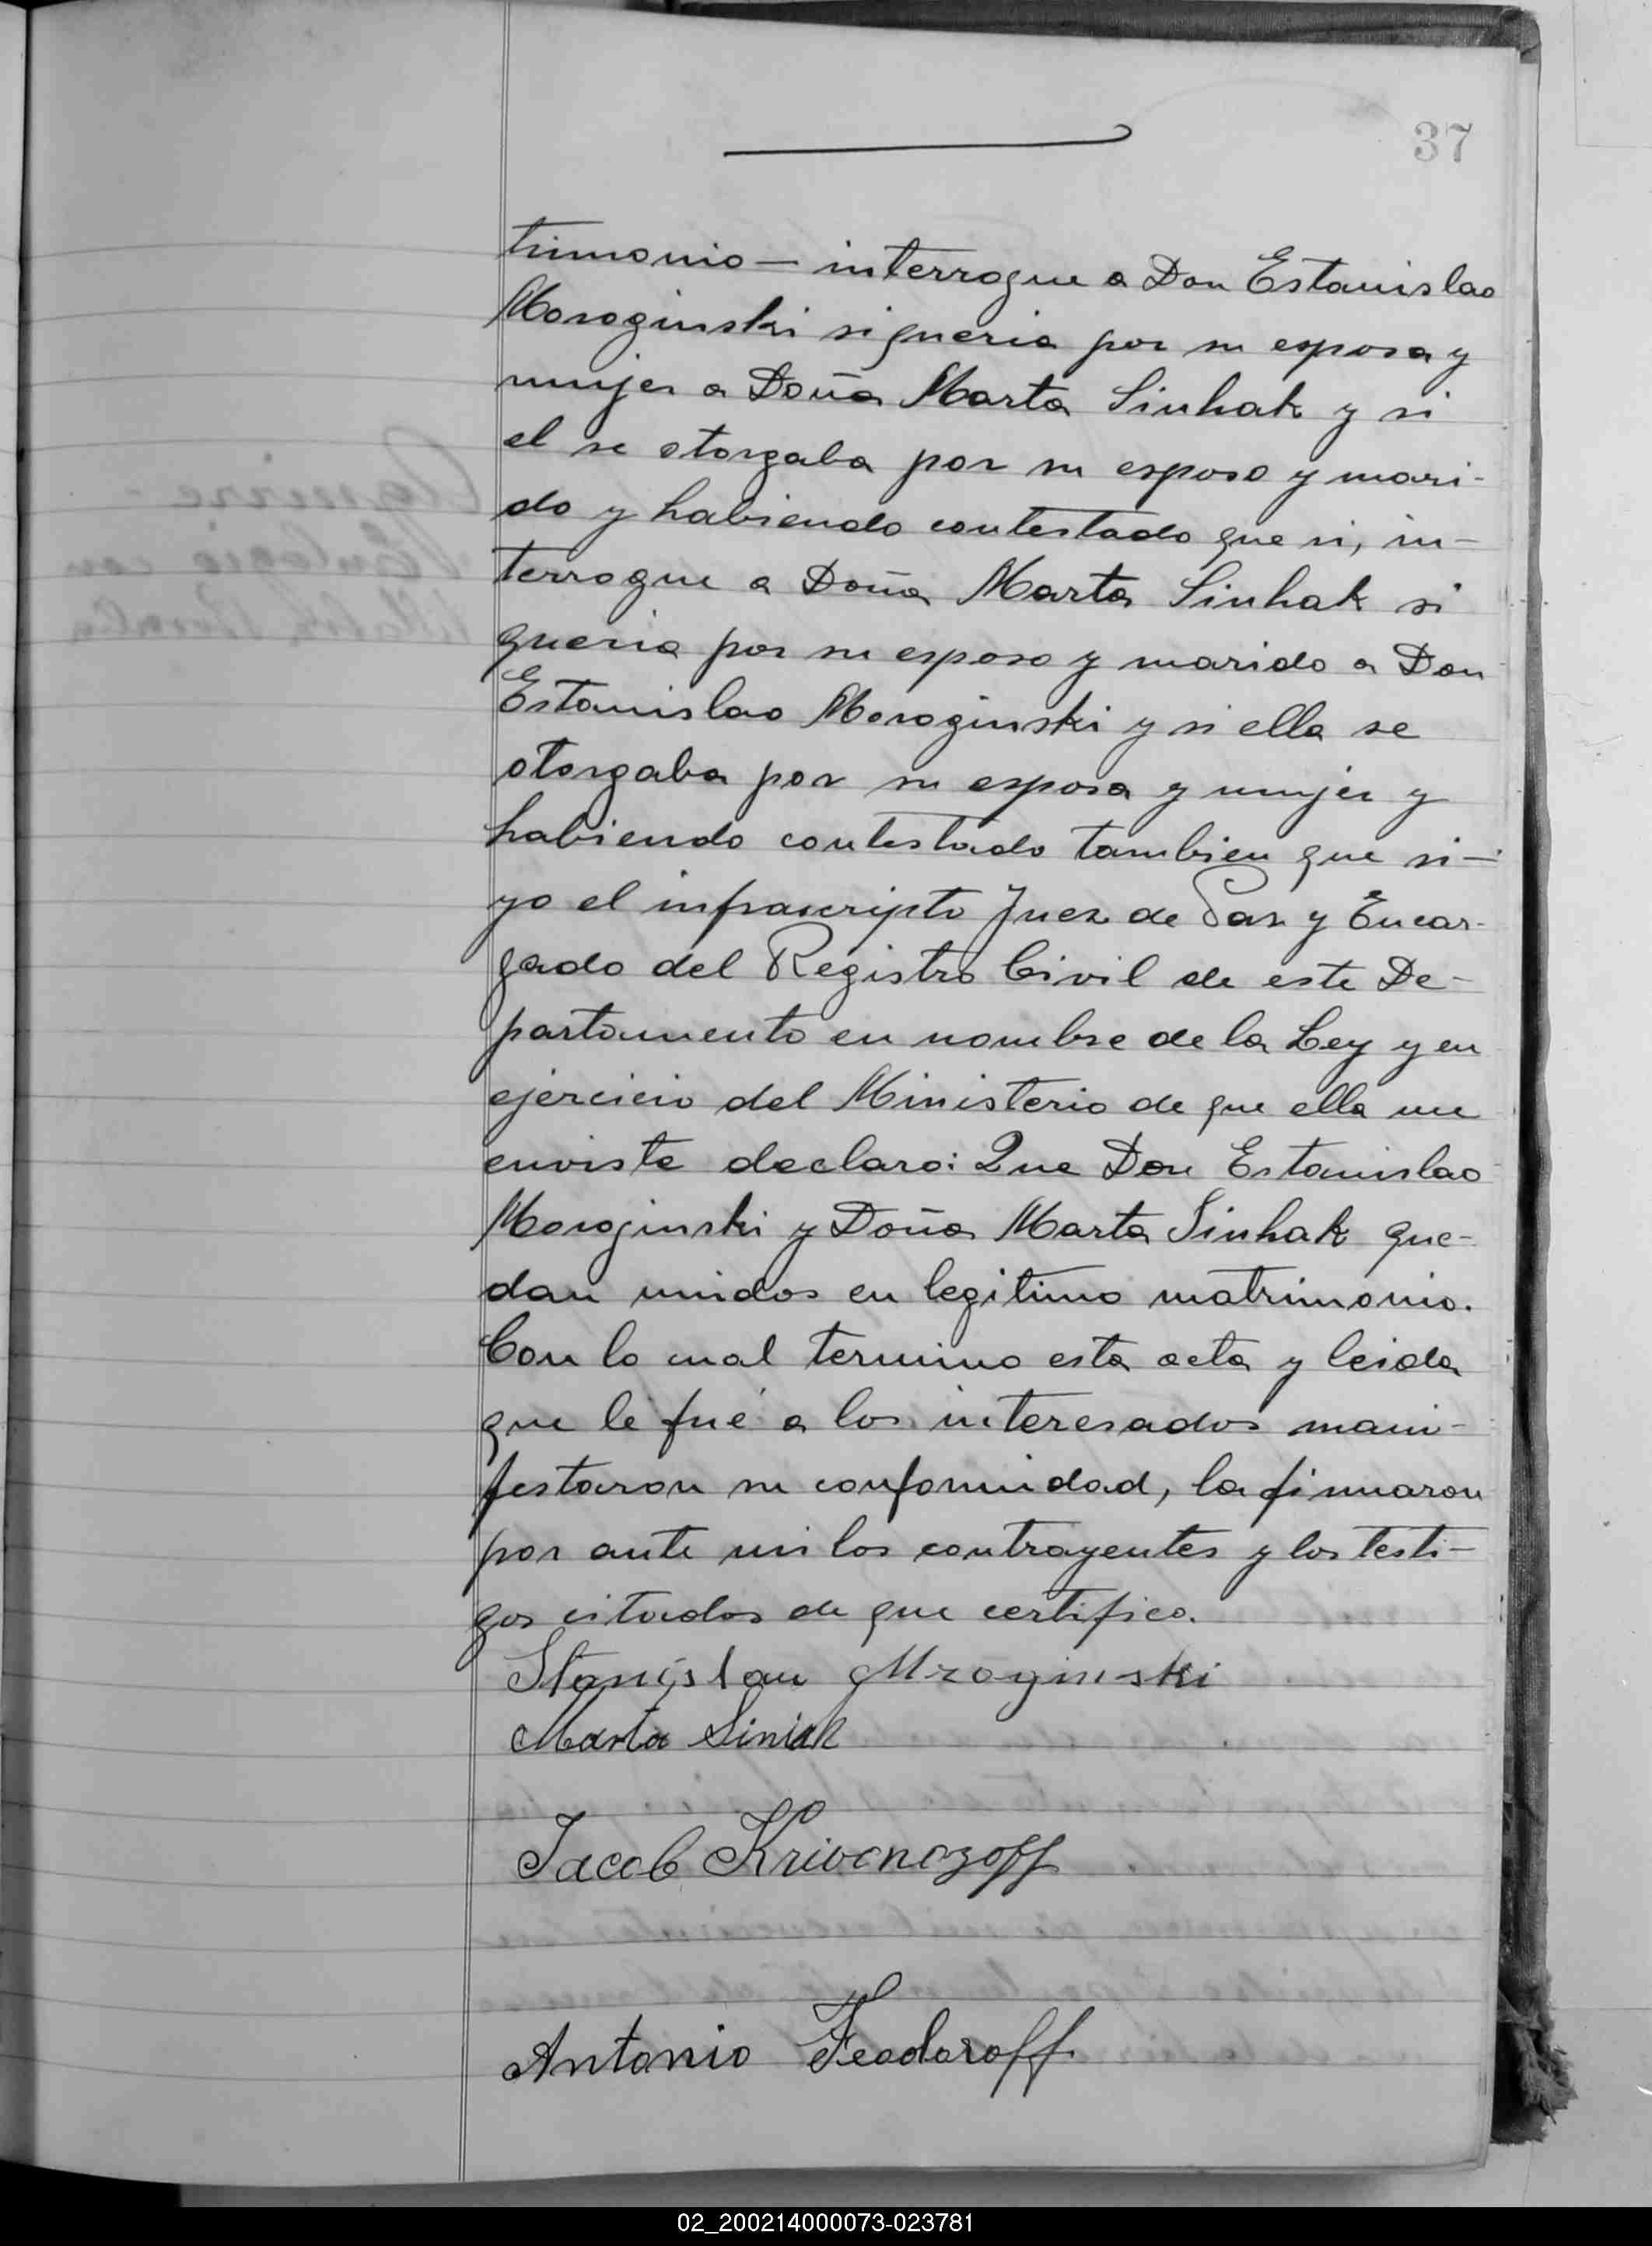 37
trimonio — interrogue a Don Estanislao
Moroginski si queria por su esposa y
mujer a Doña Marta Sinhak y si
el se otorgaba por su esposo y mari-
do y habiendo contestado que si, in-
terrogue a Doña Marta Sinhak si
queria por su esposo y marido a Don
Estanislao Moroginski y si ella se
otorgaba por su esposa y mujer y
habiendo contestado tambien que si —
yo el infrascripto Juez de Paz y Encar-
gado del Registro Civil de este De-
partamento en nombre de la Ley y en
ejercicio del Ministerio de que ella me
enviste declaro: Que Don Estanislao
Moroginski y Doña Marta Sinhak que-
dan unidos en legitimo matrimonio.
Con lo cual termino esta acta y leida
que le fué a los interesados mani-
festaron su conformidad, la firmaron
por ante mi los contrayentes y los testi-
gos citados de que certifico.
Stanislau Mroginski
Marta Siniak
Jacob Krivonozoff
Antonio Feodoroff
02_200214000073-023781